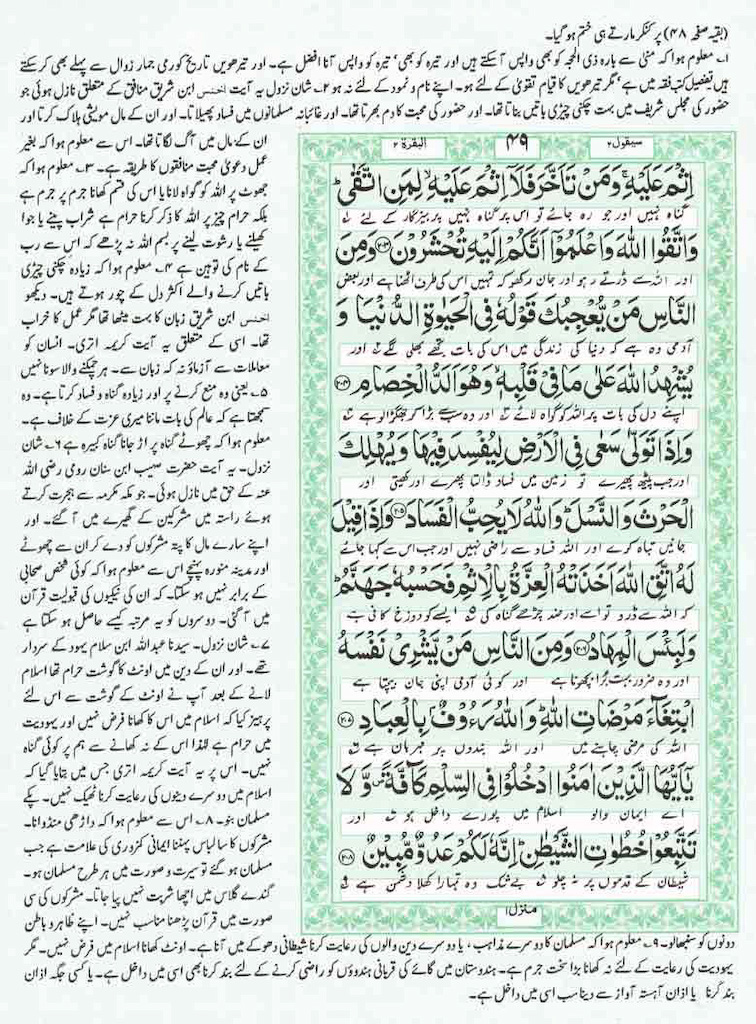 (بقیہ صفحہ ۴۸) پر کنکر مارتے ہی ختم ہو گیا۔
۱۔ معلوم ہوا کہ منیٰ سے بارہ ذی الحجہ کو بھی واپس آ سکتے ہیں اور تیرہ کو بھی، تیرہ کو واپس آنا افضل ہے۔ اور تیرھویں تاریخ کو رمی جمار زوال سے پہلے بھی کر سکتے
ہیں تفصیل کتب فقہ میں ہے، مگر تیرھویں کا قیام تقویٰ کے لئے ہو۔ اپنے نام و نمود کے لئے نہ ہو ۲۔ شان نزول یہ آیت اخنس ابن شریق منافق کے متعلق نازل ہوئی جو
حضور کی مجلس شریف میں بہت چکنی چپڑی باتیں بناتا تھا۔ اور حضور کی محبت کا دم بھرتا تھا۔ اور غائبانہ مسلمانوں میں فساد پھیلاتا۔ اور ان کے مال مویشی ہلاک کرتا اور
ان کے مال میں آگ لگاتا تھا۔ اس سے معلوم ہوا کہ بغیر
عمل دعویٰ محبت منافقوں کا طریقہ ہے۔ ۳۔ معلوم ہوا کہ
جھوٹ پر اللہ کو گواہ لانا یا اس کی قسم کھانا جرم پر جرم ہے
بلکہ حرام چیز پر اللہ کا ذکر کرنا حرام ہے شراب پینے یا جوا
کھیلنے یا رشوت لینے پر بسم اللہ نہ پڑھے کہ اس سے رب
کے نام کی توہین ہے ۴۔ معلوم ہوا کہ زیادہ چکنی چپڑی
باتیں کرنے والے اکثر دل کے چور ہوتے ہیں۔ دیکھو
اخنس ابن شریق زبان کا بہت میٹھا تھا مگر عمل کا خراب
تھا۔ اسی کے متعلق یہ آیت کریمہ اتری۔ انسان کو
معاملات سے آزماؤ نہ کہ زبان سے۔ ہر چمکنے والا سونا نہیں
۵۔ یعنی وہ منع کرنے پر اور زیادہ گناہ و فساد کرتا ہے۔ وہ
سمجھتا ہے کہ عالم کی بات ماننا میری عزت کے خلاف ہے۔
معلوم ہوا کہ چھوٹے گناہ پر اڑ جانا گناہ کبیرہ ہے ۶۔ شان
نزول۔ یہ آیت حضرت صہیب ابن سنان رومی رضی اللہ
عنہ کے حق میں نازل ہوئی۔ جو مکہ مکرمہ سے ہجرت کرتے
ہوئے راستہ میں مشرکین کے گھیرے میں آ گئے۔ اور
اپنے سارے مال کا پتہ مشرکوں کو دے کر ان سے چھوٹے
اور مدینہ منورہ پہنچے اس سے معلوم ہوا کہ کوئی شخص صحابی
کے برابر نہیں ہو سکتا۔ کہ ان کی نیکیوں کی قبولیت قرآن
میں آ گئی۔ دوسروں کو یہ مرتبہ کیسے حاصل ہو سکتا ہے
۷۔ شان نزول۔ سیدنا عبداللہ ابن سلام یہود کے سردار
تھے۔ اور ان کے دین میں اونٹ کا گوشت حرام تھا اسلام
لانے کے بعد آپ نے اونٹ کے گوشت سے اس لئے
پرہیز کیا کہ اسلام میں اس کا کھانا فرض نہیں اور یہودیت
میں حرام ہے لہٰذا اس کے نہ کھانے سے ہم پر کوئی گناہ
نہیں۔ اس پر یہ آیت کریمہ اتری جس میں بتایا گیا کہ
اسلام میں دوسرے دینوں کی رعایت کرنا ٹھیک نہیں۔ پکے
مسلمان بنو۔ ۸۔ اس سے معلوم ہوا کہ داڑھی منڈوانا۔
مشرکوں کا سا لباس پہننا ایمانی کمزوری کی علامت ہے جب
مسلمان ہو گئے تو سیرت و صورت میں ہر طرح مسلمان ہو۔
گندے گلاس میں اچھا شربت نہیں پیا جاتا۔ مشرکوں کی سی
صورت میں قرآن پڑھنا مناسب نہیں۔ اپنے ظاہر و باطن
سیقول۲ ۴۹ البقرۃ ۲
اِثْمَ عَلَیْهِ ۚ وَمَنْ تَاَخَّرَ فَلَاۤ اِثْمَ عَلَیْهِ ۙ لِمَنِ اتَّقٰی ؕ
گناہ نہیں اور جو رہ جائے تو اس پر گناہ نہیں پرہیزگار کے لئے ۱
وَاتَّقُوا اللّٰهَ وَاعْلَمُوْۤا اَنَّكُمْ اِلَیْهِ تُحْشَرُوْنَ ﴿۲۰۳﴾ وَمِنَ
اور اللہ سے ڈرتے رہو اور جان رکھو کہ تمہیں اس کی طرف اٹھنا ہے اور بعض
النَّاسِ مَنْ یُّعْجِبُكَ قَوْلُهٗ فِی الْحَیٰوةِ الدُّنْیَا وَ
آدمی وہ ہے کہ دنیا کی زندگی میں اس کی بات تجھے بھلی لگے ۲ اور
یُشْهِدُ اللّٰهَ عَلٰی مَا فِیْ قَلْبِهٖ ۙ وَهُوَ اَلَدُّ الْخِصَامِ ﴿۲۰۴﴾
اپنے دل کی بات پر اللہ کو گواہ لائے ۳ اور وہ سب سے بڑا کر جھگڑالو ہے ۴
وَاِذَا تَوَلّٰی سَعٰی فِی الْاَرْضِ لِیُفْسِدَ فِیْهَا وَیُهْلِكَ
اور جب پیٹھ پھیرے تو زمین میں فساد ڈالتا پھرے اور کھیتی اور
الْحَرْثَ وَالنَّسْلَ ؕ وَاللّٰهُ لَا یُحِبُّ الْفَسَادَ ﴿۲۰۵﴾ وَاِذَا قِیْلَ
جانیں تباہ کرے اور اللہ فساد سے راضی نہیں اور جب اس سے کہا جائے
لَهُ اتَّقِ اللّٰهَ اَخَذَتْهُ الْعِزَّةُ بِالْاِثْمِ فَحَسْبُهٗ جَهَنَّمُ ؕ
کہ اللہ سے ڈرو تو اسے اور ضد چڑھے گناہ کی ۵ ایسے کو دوزخ کافی ہے
وَلَبِئْسَ الْمِهَادُ ﴿۲۰۶﴾ وَمِنَ النَّاسِ مَنْ یَّشْرِیْ نَفْسَهُ
اور وہ ضرور بہت برا بچھونا ہے اور کوئی آدمی اپنی جان بیچتا ہے
ابْتِغَآءَ مَرْضَاتِ اللّٰهِ ؕ وَاللّٰهُ رَءُوْفٌۢ بِالْعِبَادِ ﴿۲۰۷﴾
اللہ کی مرضی چاہنے میں اور اللہ بندوں پر مہربان ہے ۶
یٰۤاَیُّهَا الَّذِیْنَ اٰمَنُوا ادْخُلُوْا فِی السِّلْمِ كَآفَّةً ۪ وَّلَا
اے ایمان والو اسلام میں پورے داخل ہو ۷ اور
تَتَّبِعُوْا خُطُوٰتِ الشَّیْطٰنِ ؕ اِنَّهٗ لَكُمْ عَدُوٌّ مُّبِیْنٌ ﴿۲۰۸﴾
شیطان کے قدموں پر نہ چلو ۸ بے شک وہ تمہارا کھلا دشمن ہے ۹
منزل۱
دونوں کو سنبھالو۔ ۹۔ معلوم ہوا کہ مسلمان کا دوسرے مذاہب، یا دوسرے دین والوں کی رعایت کرنا شیطانی دھوکے میں آنا ہے۔ اونٹ کھانا اسلام میں فرض نہیں۔ مگر
یہودیت کی رعایت کے لئے نہ کھانا بڑا سخت جرم ہے۔ ہندوستان میں گائے کی قربانی ہندوؤں کو راضی کرنے کے لئے بند کرنا بھی اسی میں داخل ہے۔ یا کسی جگہ اذان
بند کرنا یا اذان آہستہ آواز سے دینا سب اسی میں داخل ہے۔